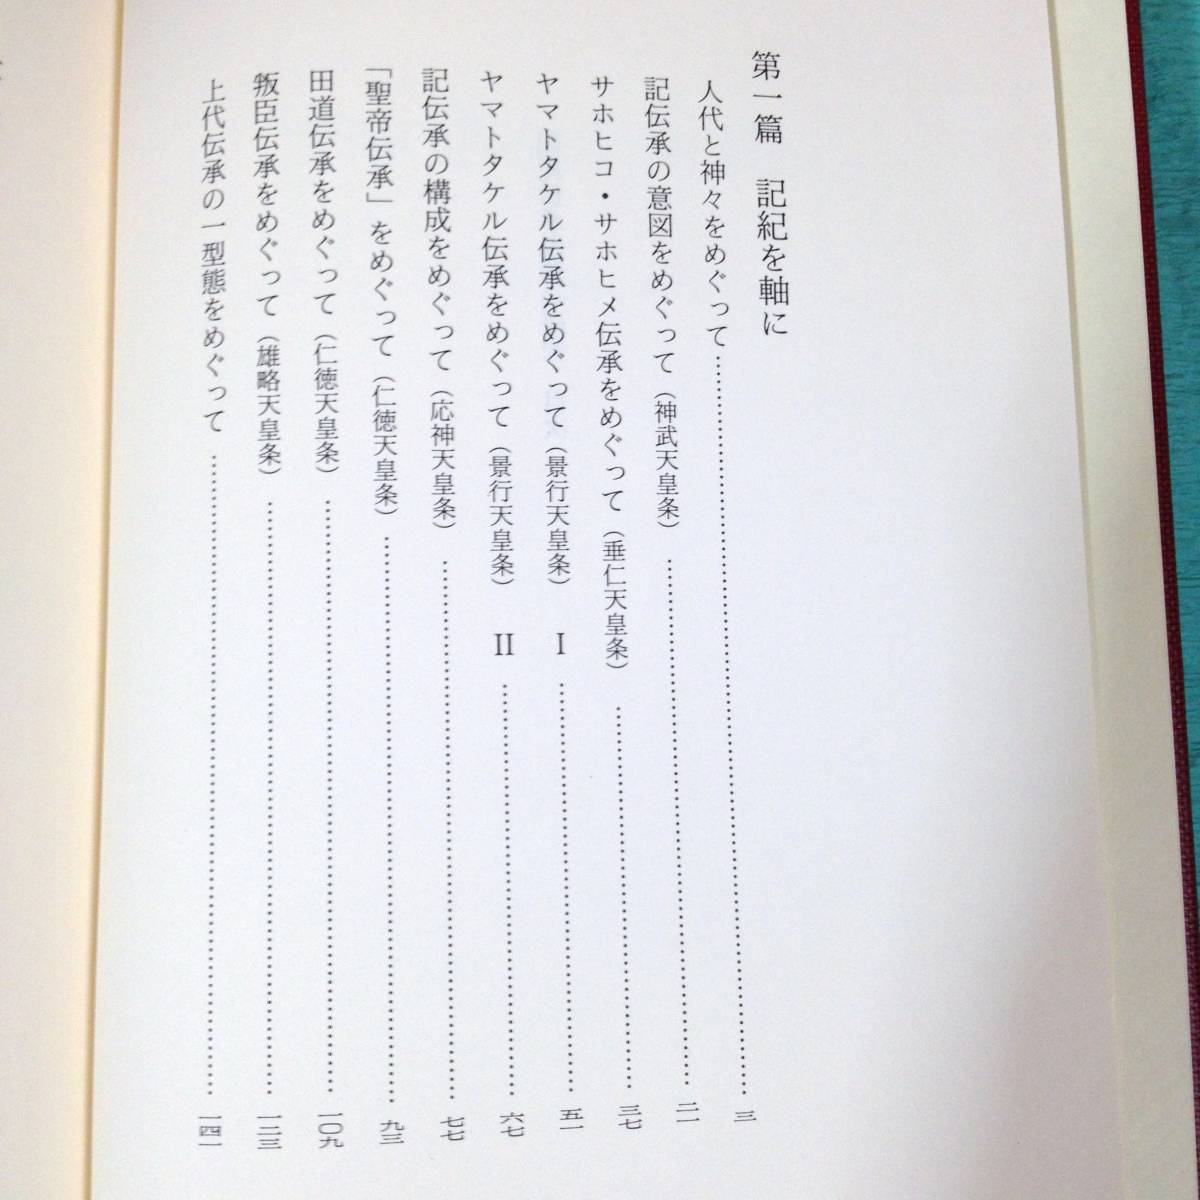 第一篇　記紀を軸に
人代と神々をめぐって……三
記伝承の意図をめぐって（神武天皇条）……二一
サホヒコ・サホヒメ伝承をめぐって（垂仁天皇条）……三七
ヤマトタケル伝承をめぐって（景行天皇条）　Ⅰ……五一
ヤマトタケル伝承をめぐって（景行天皇条）　Ⅱ……六七
記伝承の構成をめぐって（応神天皇条）……七七
「聖帝伝承」をめぐって（仁徳天皇条）……九三
田道伝承をめぐって（仁徳天皇条）……一〇九
叛臣伝承をめぐって（雄略天皇条）……一二三
上代伝承の一型態をめぐって……一四一